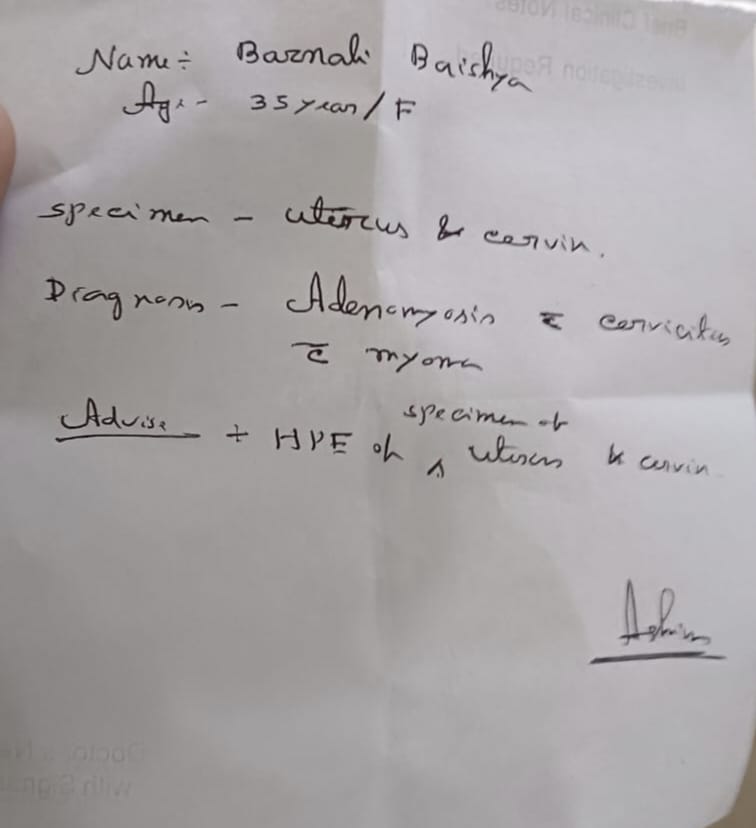 Name:- Barnali Baishya
Age - 35 year / F
specimen - uterus & cervix.
Diagnosis - Adenomyosis c̄ cervicitis
c̄ myoma
Advise :- HPE of ^ specimen of uterus & cervix